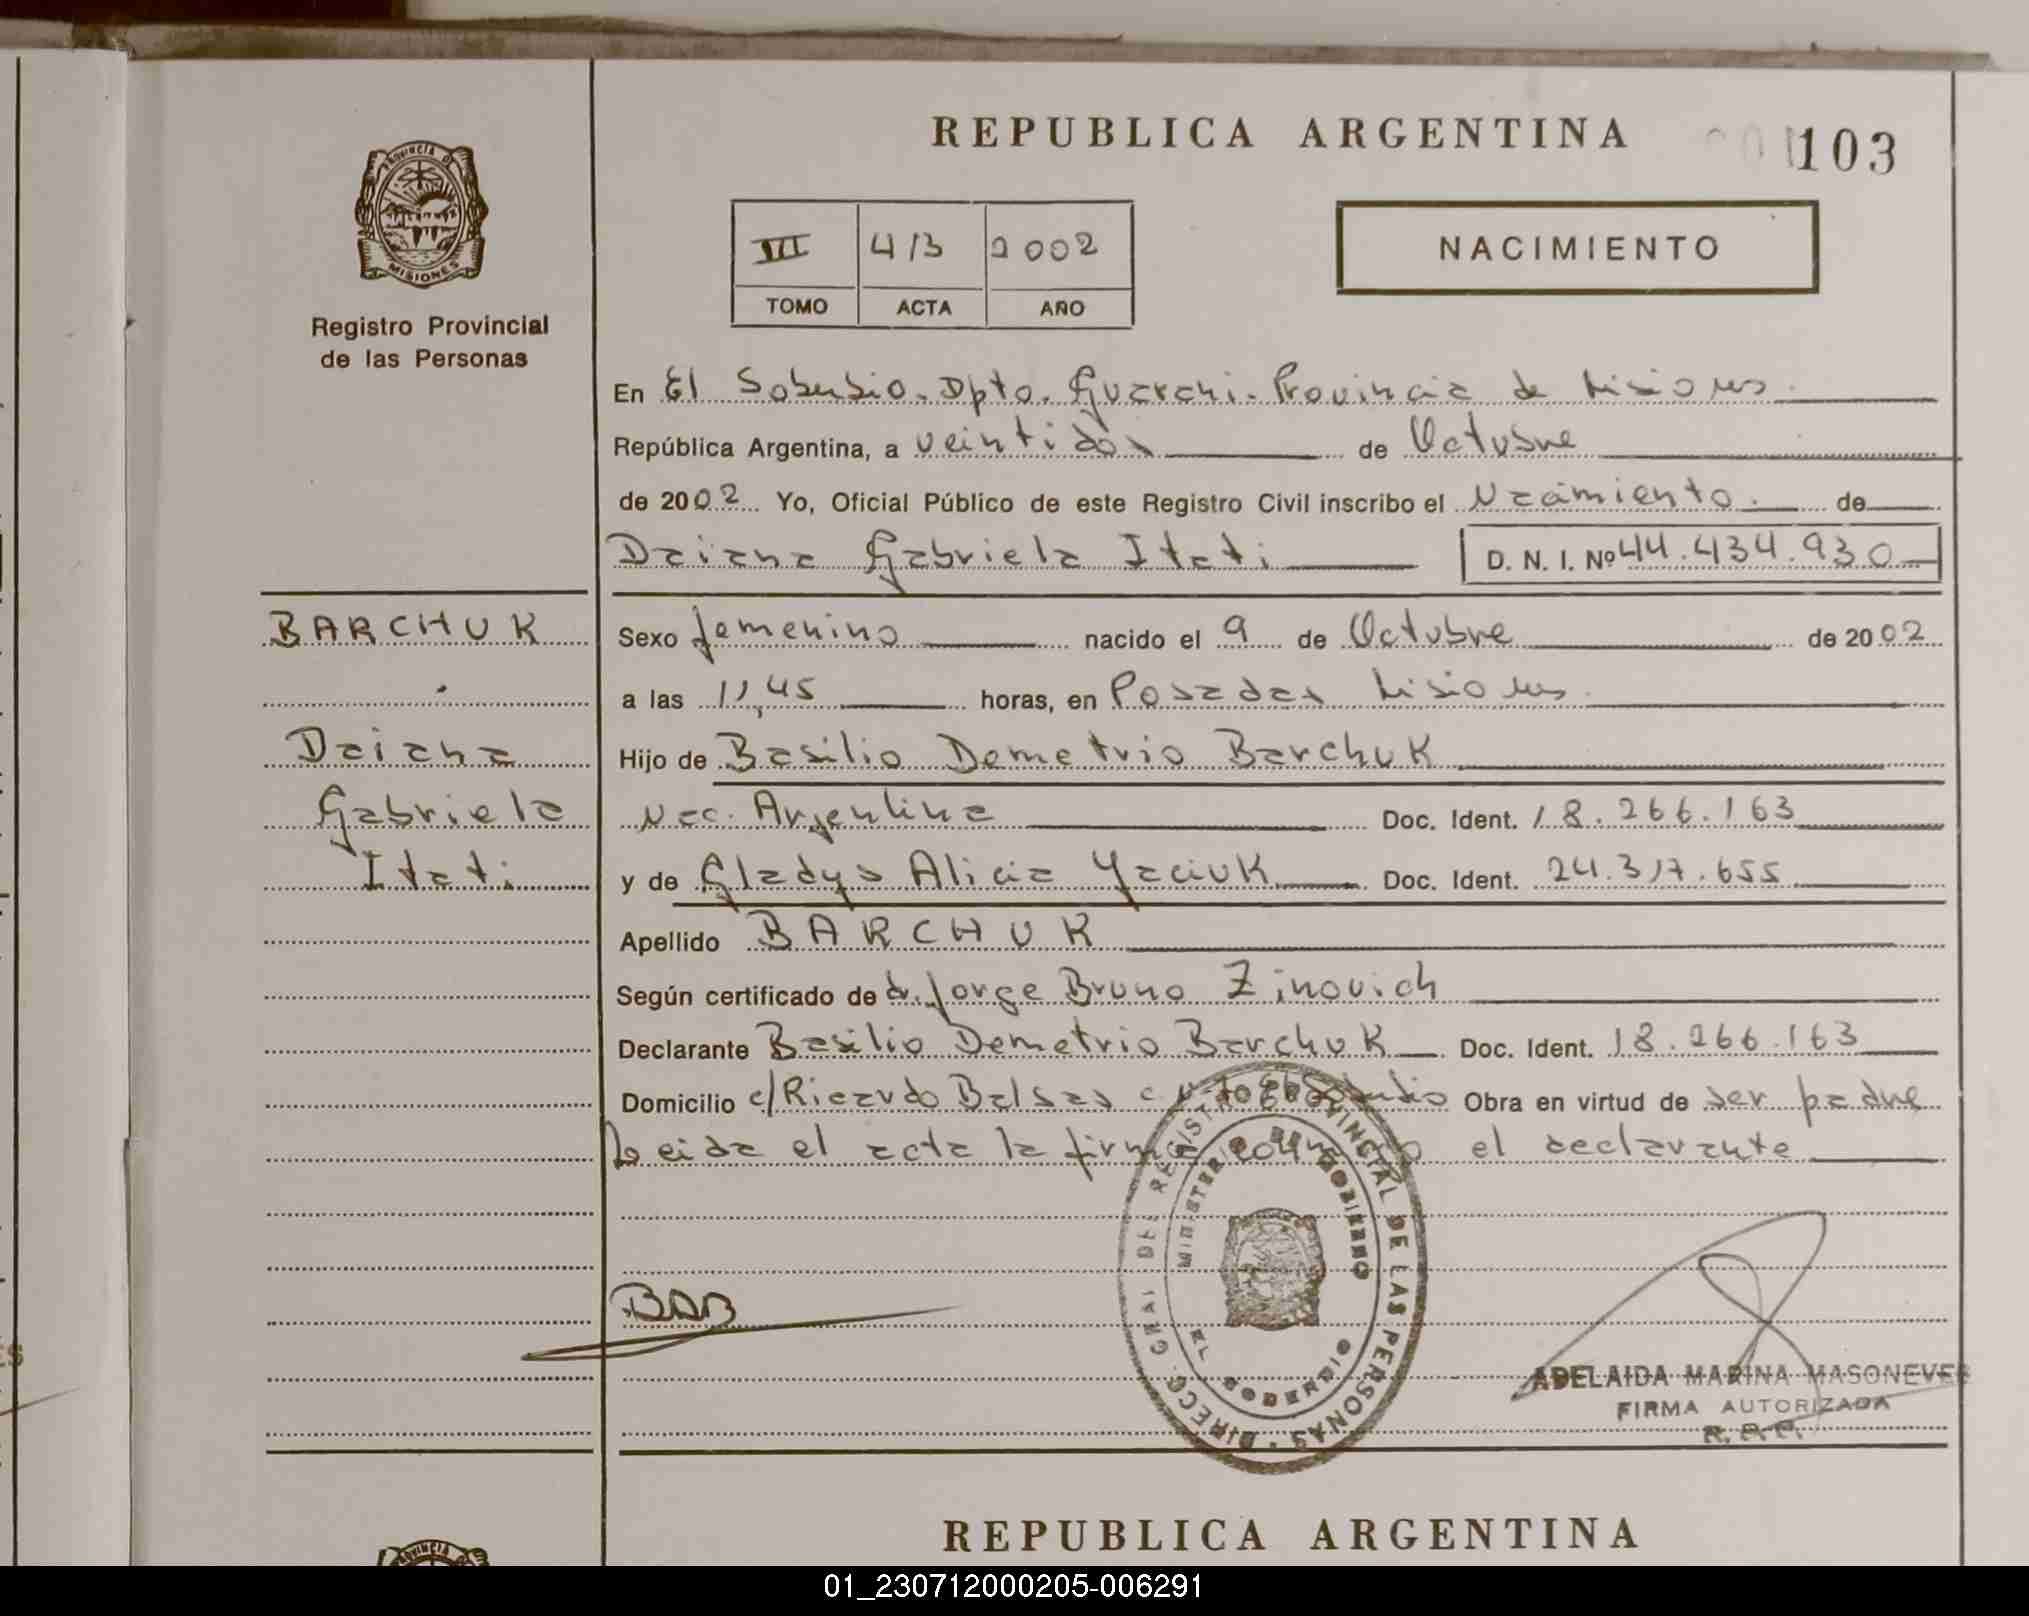 REPUBLICA ARGENTINA
103
PROVINCIA DE
MISIONES
Registro Provincial
de las Personas
III 413 2002
TOMO ACTA AÑO
NACIMIENTO
En El Soberbio. Dpto. Guarani. Provincia de Misiones.
República Argentina, a veintidós de Octubre
de 2002 Yo, Oficial Público de este Registro Civil inscribo el Nacimiento. de
Daiana Gabriela Itati D. N. I. Nº 44.434.930
BARCHUK
Daiana
Gabriela
Itati
Sexo femenino nacido el 9 de Octubre de 2002
a las 11,45 horas, en Posadas Misiones.
Hijo de Basilio Demetrio Barchuk
Nac. Argentina Doc. Ident. 18.266.163
y de Gladys Alicia Yaciuk Doc. Ident. 24.317.655
Apellido BARCHUK
Según certificado de dr. Jorge Bruno Zinovich
Declarante Basilio Demetrio Barchuk Doc. Ident. 18.266.163
Domicilio c/Ricardo Balsas Obra en virtud de ser padre
Leida el acta la firma conmigo el declarante
DIRECC. GRAL DEL REGISTRO PROVINCIAL DE LAS PERSONAS
MINISTERIO DE GOBIERNO
EL SOBERBIO
BDB
ADELAIDA MARINA MASONEVES
FIRMA AUTORIZADA
R.P.P.
REPUBLICA ARGENTINA
PROVINCIA DE
01_230712000205-006291